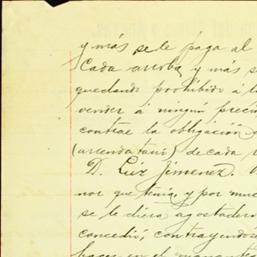 y más se le paga al
Cada arroba, y más s
quedando prohibido á l
vender á ningún preci
contrae la obligación
(arrendatario) de cada
D. Luiz Jimenez.
nor que tenía, y por muc
se le diera agostadero
concedió, contrayendose
hacer en el manantia